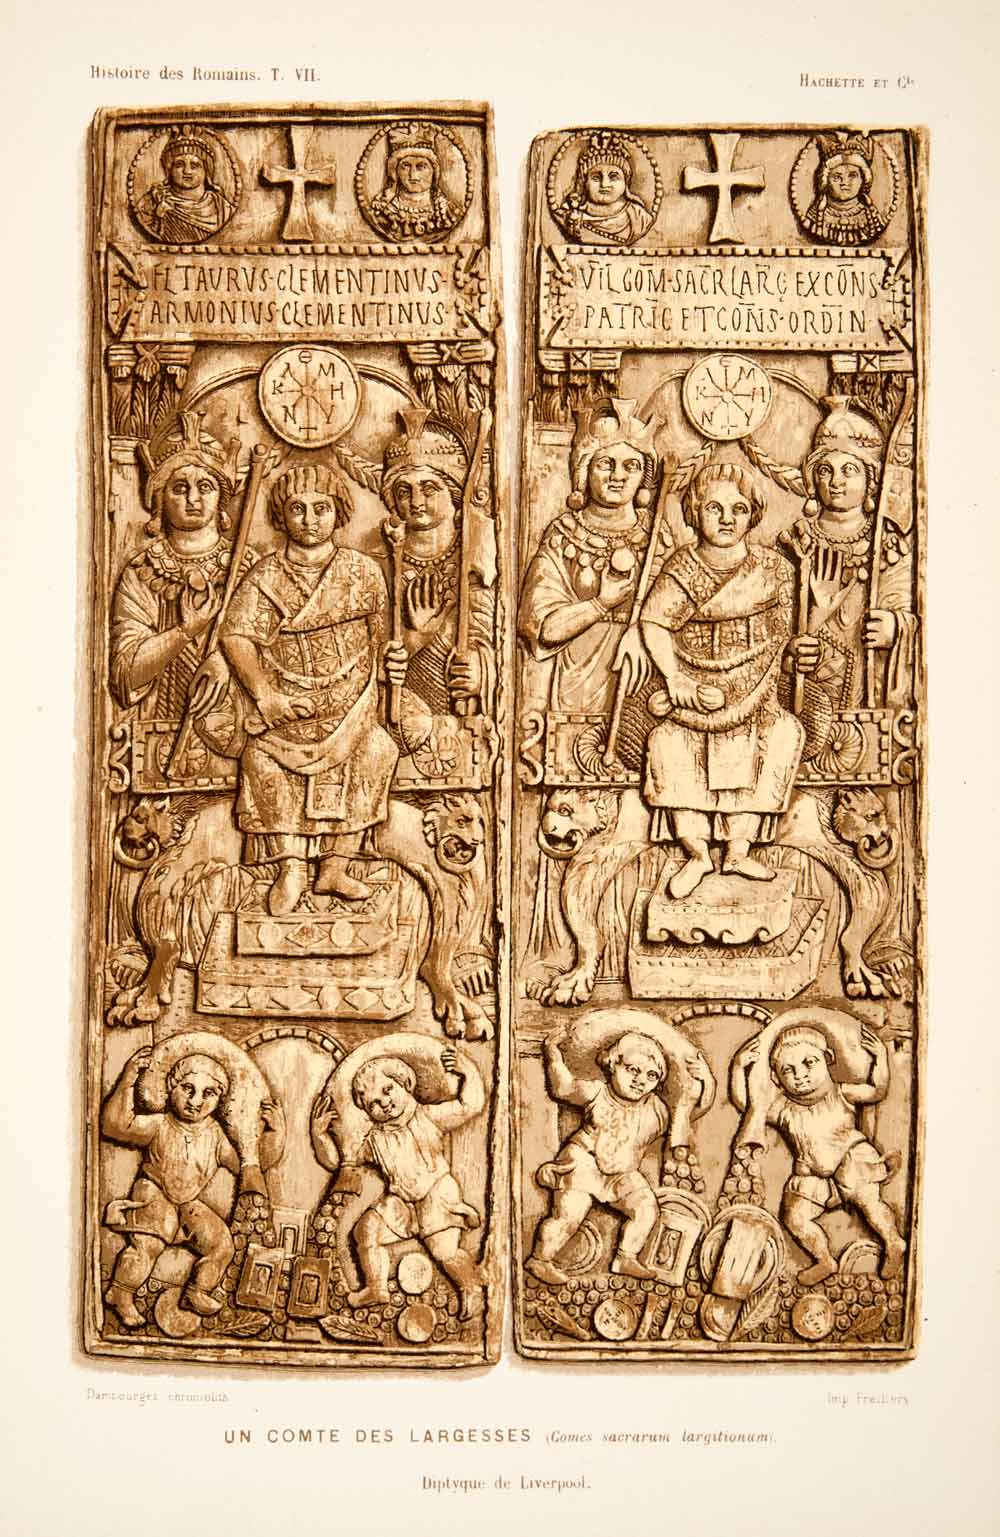 Histoire des Romains. T. VII.
HACHETTE ET Cie
FL TAURUS·CLEMENTINUS·
ARMONIUS·CLEMENTINUS·
V̅IL G̅OM̅·SAC̅R̅ LAR̅Ç EX CO̅N̅S·
PAT̅R̅I̅C ET CO̅N̅S·ORD̅I̅N̅
Dambourgez chromolith.
Imp. Fraillery
UN COMTE DES LARGESSES (Comes sacrarum largitionum).
Diptyque de Liverpool.